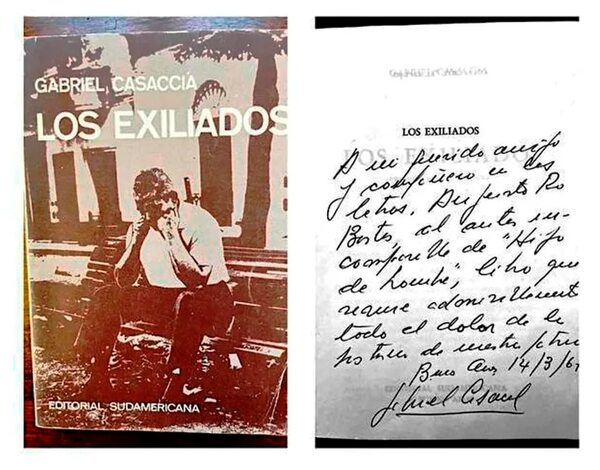 GABRIEL CASACCIA
LOS EXILIADOS
EDITORIAL SUDAMERICANA
LOS EXILIADOS
A mi querido amigo
y compañero en las
letras, Augusto Roa
Bastos, al autor in-
comparable de "Hijo
de hombre", libro que
resume admirablemente
todo el dolor de la
historia de nuestra patria
Buenos Aires 14/3/67
Gabriel Casaccia